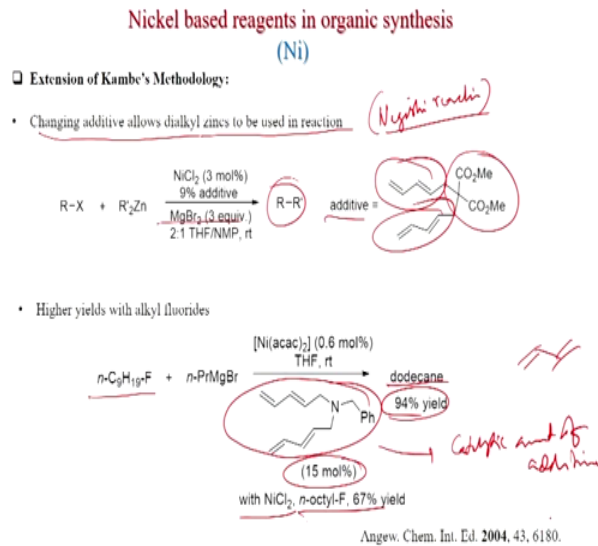 Nickel based reagents in organic synthesis
(Ni)
❑ Extension of Kambe's Methodology:
• Changing additive allows dialkyl zincs to be used in reaction
(Negishi reaction)
NiCl2 (3 mol%)
9% additive
R-X + R'2Zn
MgBr2 (3 equiv.)
2:1 THF/NMP, rt
R-R'
additive =
CO2Me
CO2Me
• Higher yields with alkyl fluorides
[Ni(acac)2] (0.6 mol%)
THF, rt
n-C9H19-F + n-PrMgBr
dodecane
94% yield
N
Ph
(15 mol%)
Catalytic amt of
additive
with NiCl2, n-octyl-F, 67% yield
Angew. Chem. Int. Ed. 2004, 43, 6180.